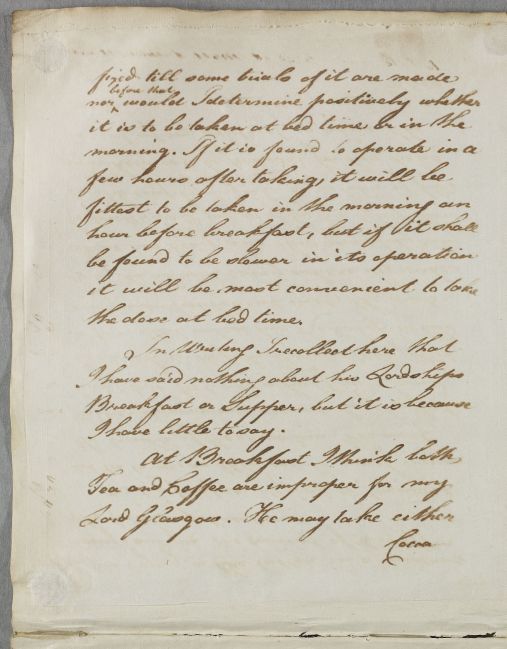 fixed till some trials of it are made
before that
nor would I determine positively whether
it is to be taken at bed time or in the
morning. If it is found to operate in a
few hours after taking, it will be
fittest to be taken in the morning an
hour before breakfast, but if it shall
be found to be slower in its operation
it will be most convenient to take
the dose at bed time.
In Writing I recollect here that
I have said nothing about his Lordships
Breakfast or Supper, but it is because
I have little to say.
At Breakfast I think both
Tea and Coffee are improper for my
Lord Glasgow. He may take either
Cocoa